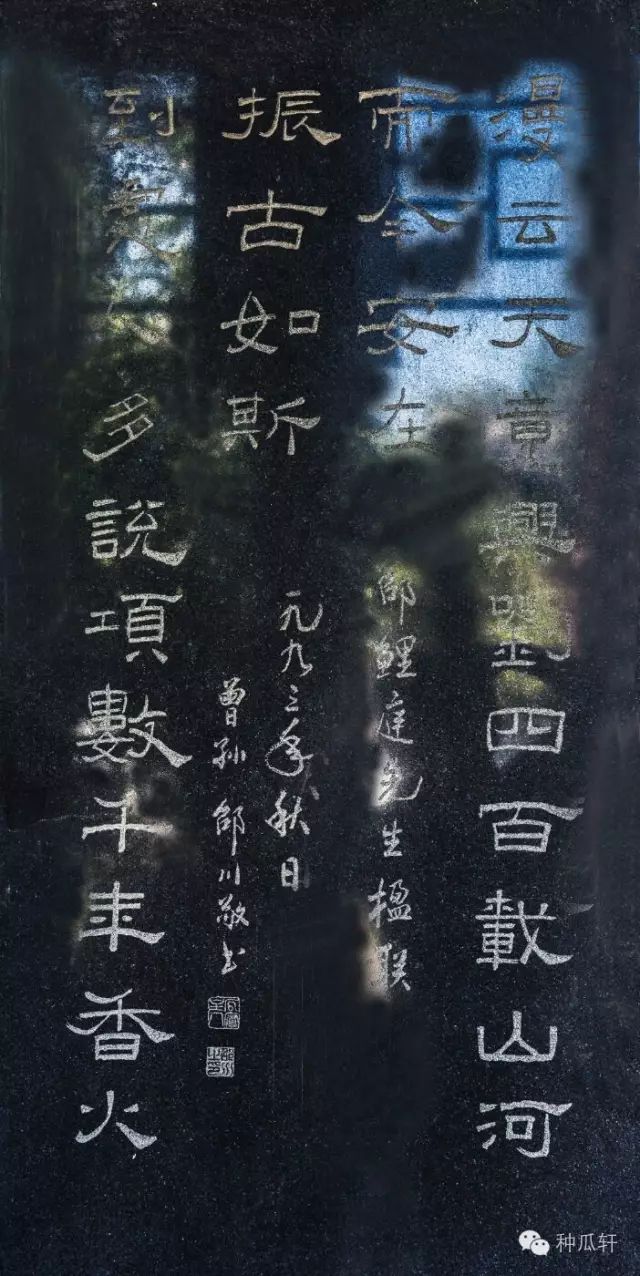 漫云天章興劉四百載山河
而今安在
到處多說項數千年香火
振古如斯
邵鯉庭先生楹联
一九九三年秋日
曾孙邵川敬书
种瓜轩